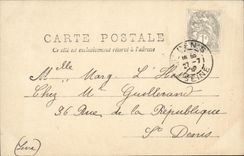 CARTE POSTALE
Ce côté est exclusivement réservé à l'adresse
Melle Marg. L'H
Chez M. Guillerand
36 Rue de la République
St Denis